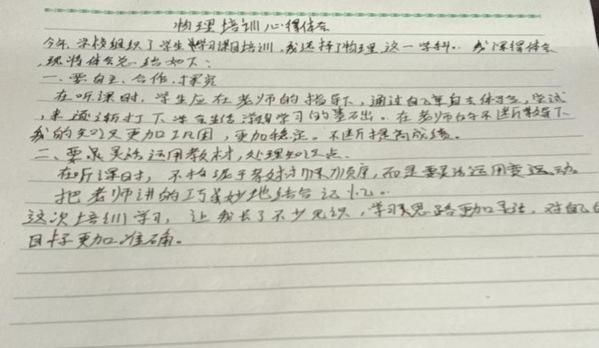 物理培训心得体会
今年学校组织了学生学习课目培训,我选择了物理这一学科。我深得体会
现将体会总结如下:
一、要自主、合作、探究
在听课时,学生应在老师的指导下,通过自己亲自去体
来 下学生终 学习的基石出。在老师的不断教导下、
我的知识更加巩固,更加稳定。不断提高成绩。
二、要灵活运用教材,处理知识点
在听课时,不 教材 顺序,而是要灵活运用要运动
把老师讲的巧妙地结合记忆。
这次培训学习,让我长了不少见识,学习思路更加灵活,对自己
目标更加准确。